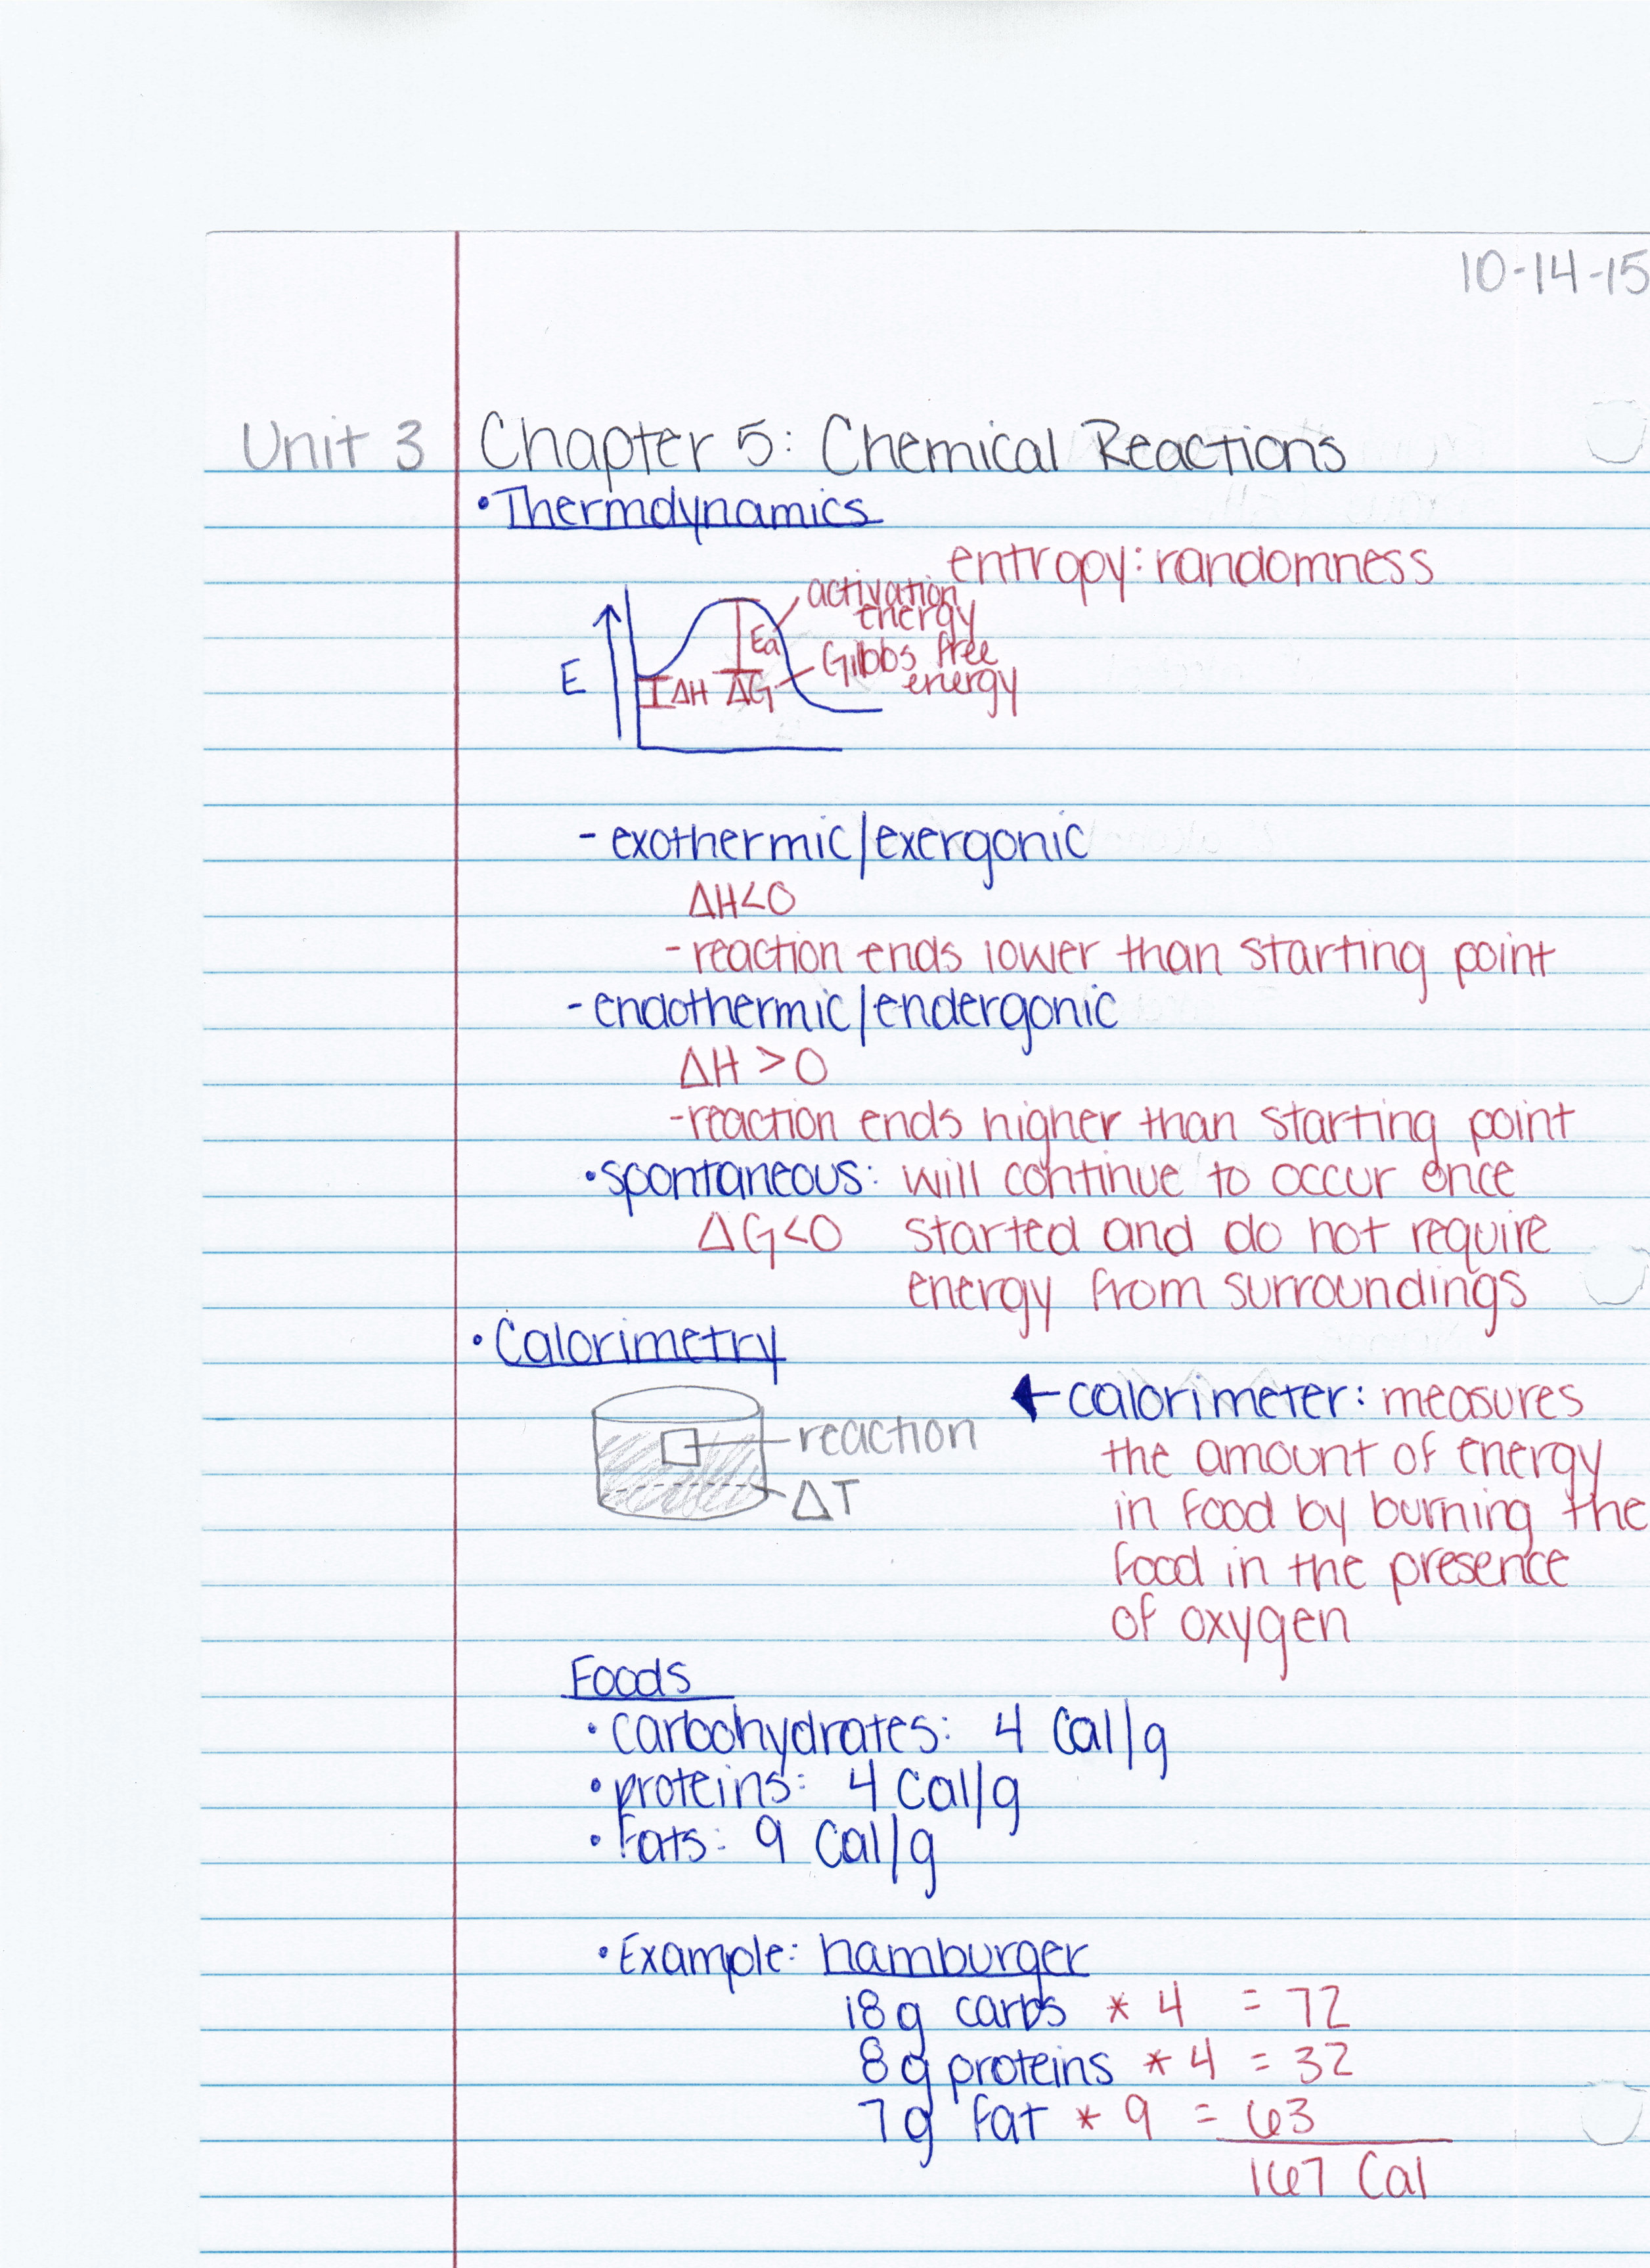 10-14-15
Unit 3 Chapter 5: Chemical Reactions
• Thermdynamics
entropy: randomness
activation
energy
Ea
Gibbs free
energy
E
ΔH ΔG
- exothermic/exergonic
ΔH<0
- reaction ends lower than starting point
- endothermic/endergonic
ΔH >0
- reaction ends higher than starting point
• spontaneous: will continue to occur once
ΔG<0 started and do not require
energy from surroundings
• Calorimetry
← calorimeter: measures
reaction
the amount of energy
ΔT
in food by burning the
food in the presence
of oxygen
Foods
• carbohydrates: 4 Cal/g
• proteins: 4 Cal/g
• Fats: 9 Cal/g
• Example: hamburger
18g carbs * 4 = 72
8g proteins * 4 = 32
7g fat * 9 = 63
167 Cal